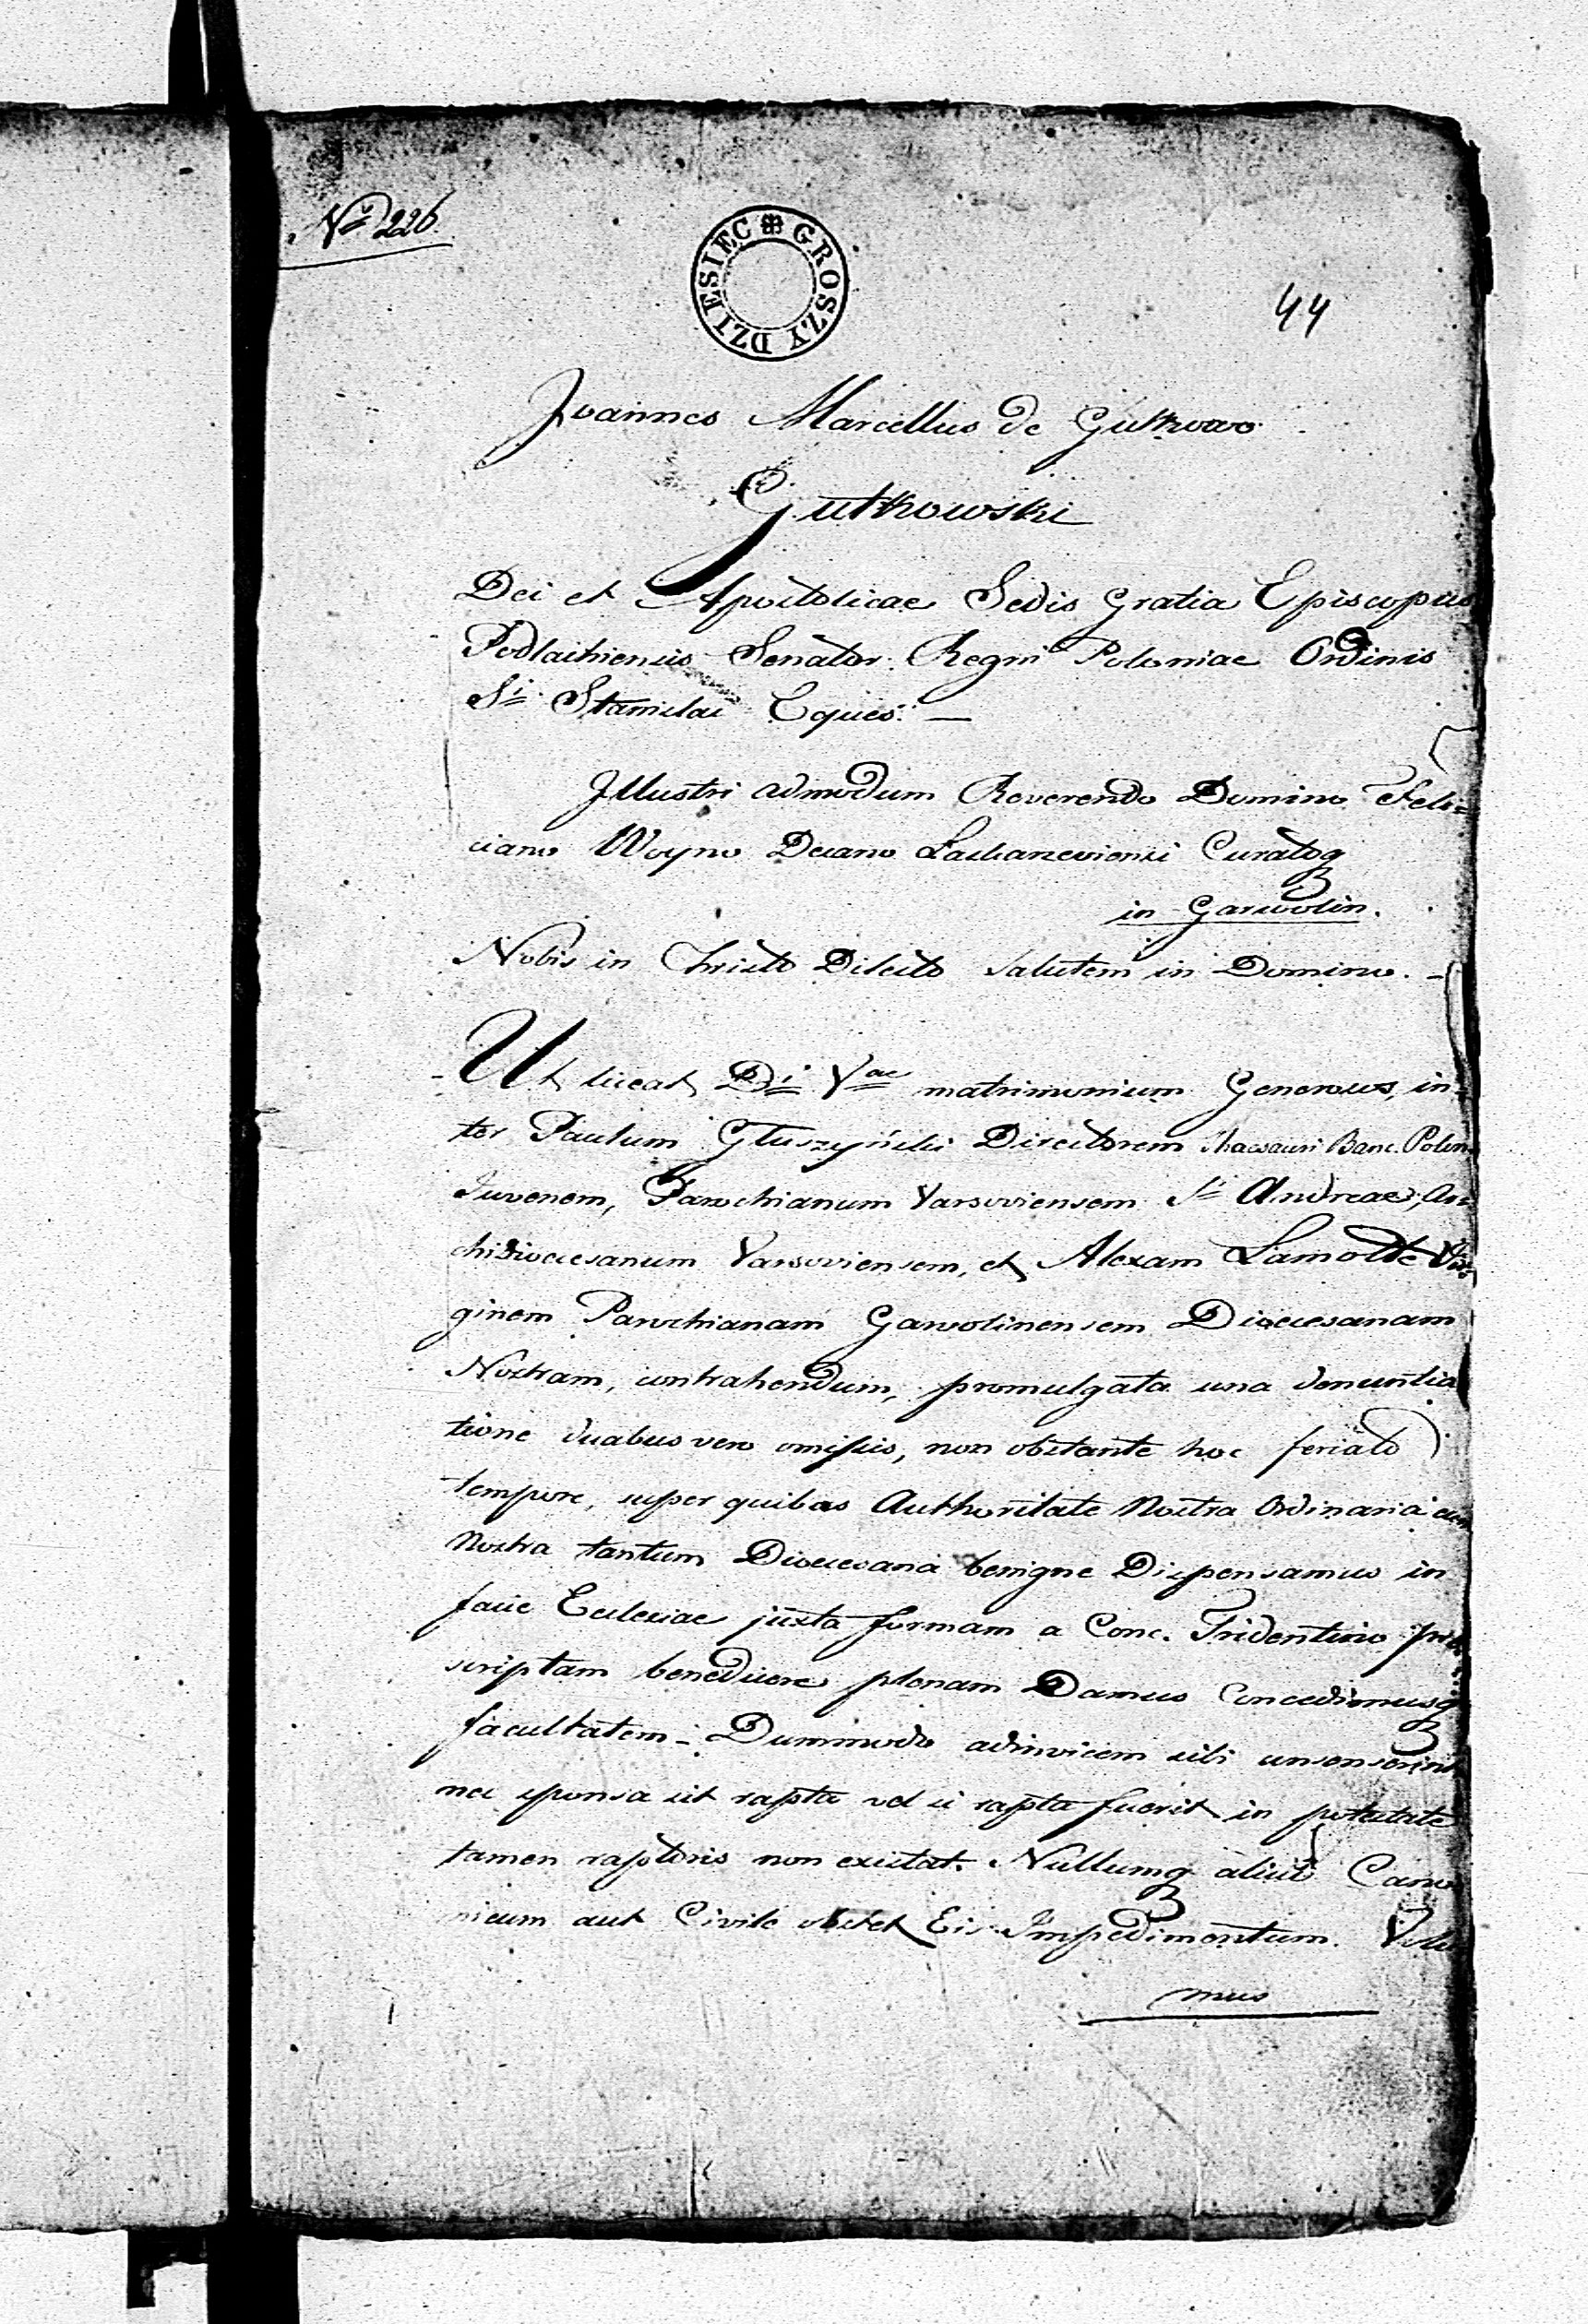 No 226.
GROSZY DZIESIEC
44
Joannes Marcellus de Gutkowo
Gutkowski
Dei et Apostolicae Sedis Gratia Episcopus
Podlachiensis Senator Regni Poloniae Ordinis
Sti Stanislai Eques. —
Illustri admodum Reverendo Domino Feli=
ciano Woyno Decano Curatoq
in Garwolin.
Nobis in Christo Dilecto Salutem in Domino. -
Ut liceat Di Vae matrimonium Generosus, in=
ter Paulum Głuszyński Directorem Thaesauri Banc. Polon.
Juvenem, Parochianum Varsoviensem Sti Andreae, Ar=
chidioecesanum Varsoviensem, et Alexam Lamotte Vir=
ginem Parochianam Garvolinensem Dioecesanam
Nostram, contrahendum, promulgata una denuntia
tione duabus vero omissis, non obstante hoc feriato
tempore, super quibus Authoritate Nostra Ordinaria cum
Nostra tantum Dioecesana benigne Dispensamus in
facie Ecclesiae juxta formam a Conc. Tridentino prae
scriptam benedicere plenam Damus Concedimusq
facultatem - Dummodo adinvicem sibi consenserint
nec sponsa sit rapta vel si rapta fuerit in potestate
tamen raptoris non existat. Nullumq aliud Cano
nicum aut Civile obstet Eis Impedimentum. Volu
mus